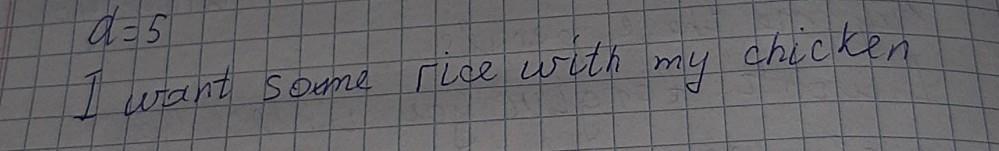 d=5
I want some rice with my chicken